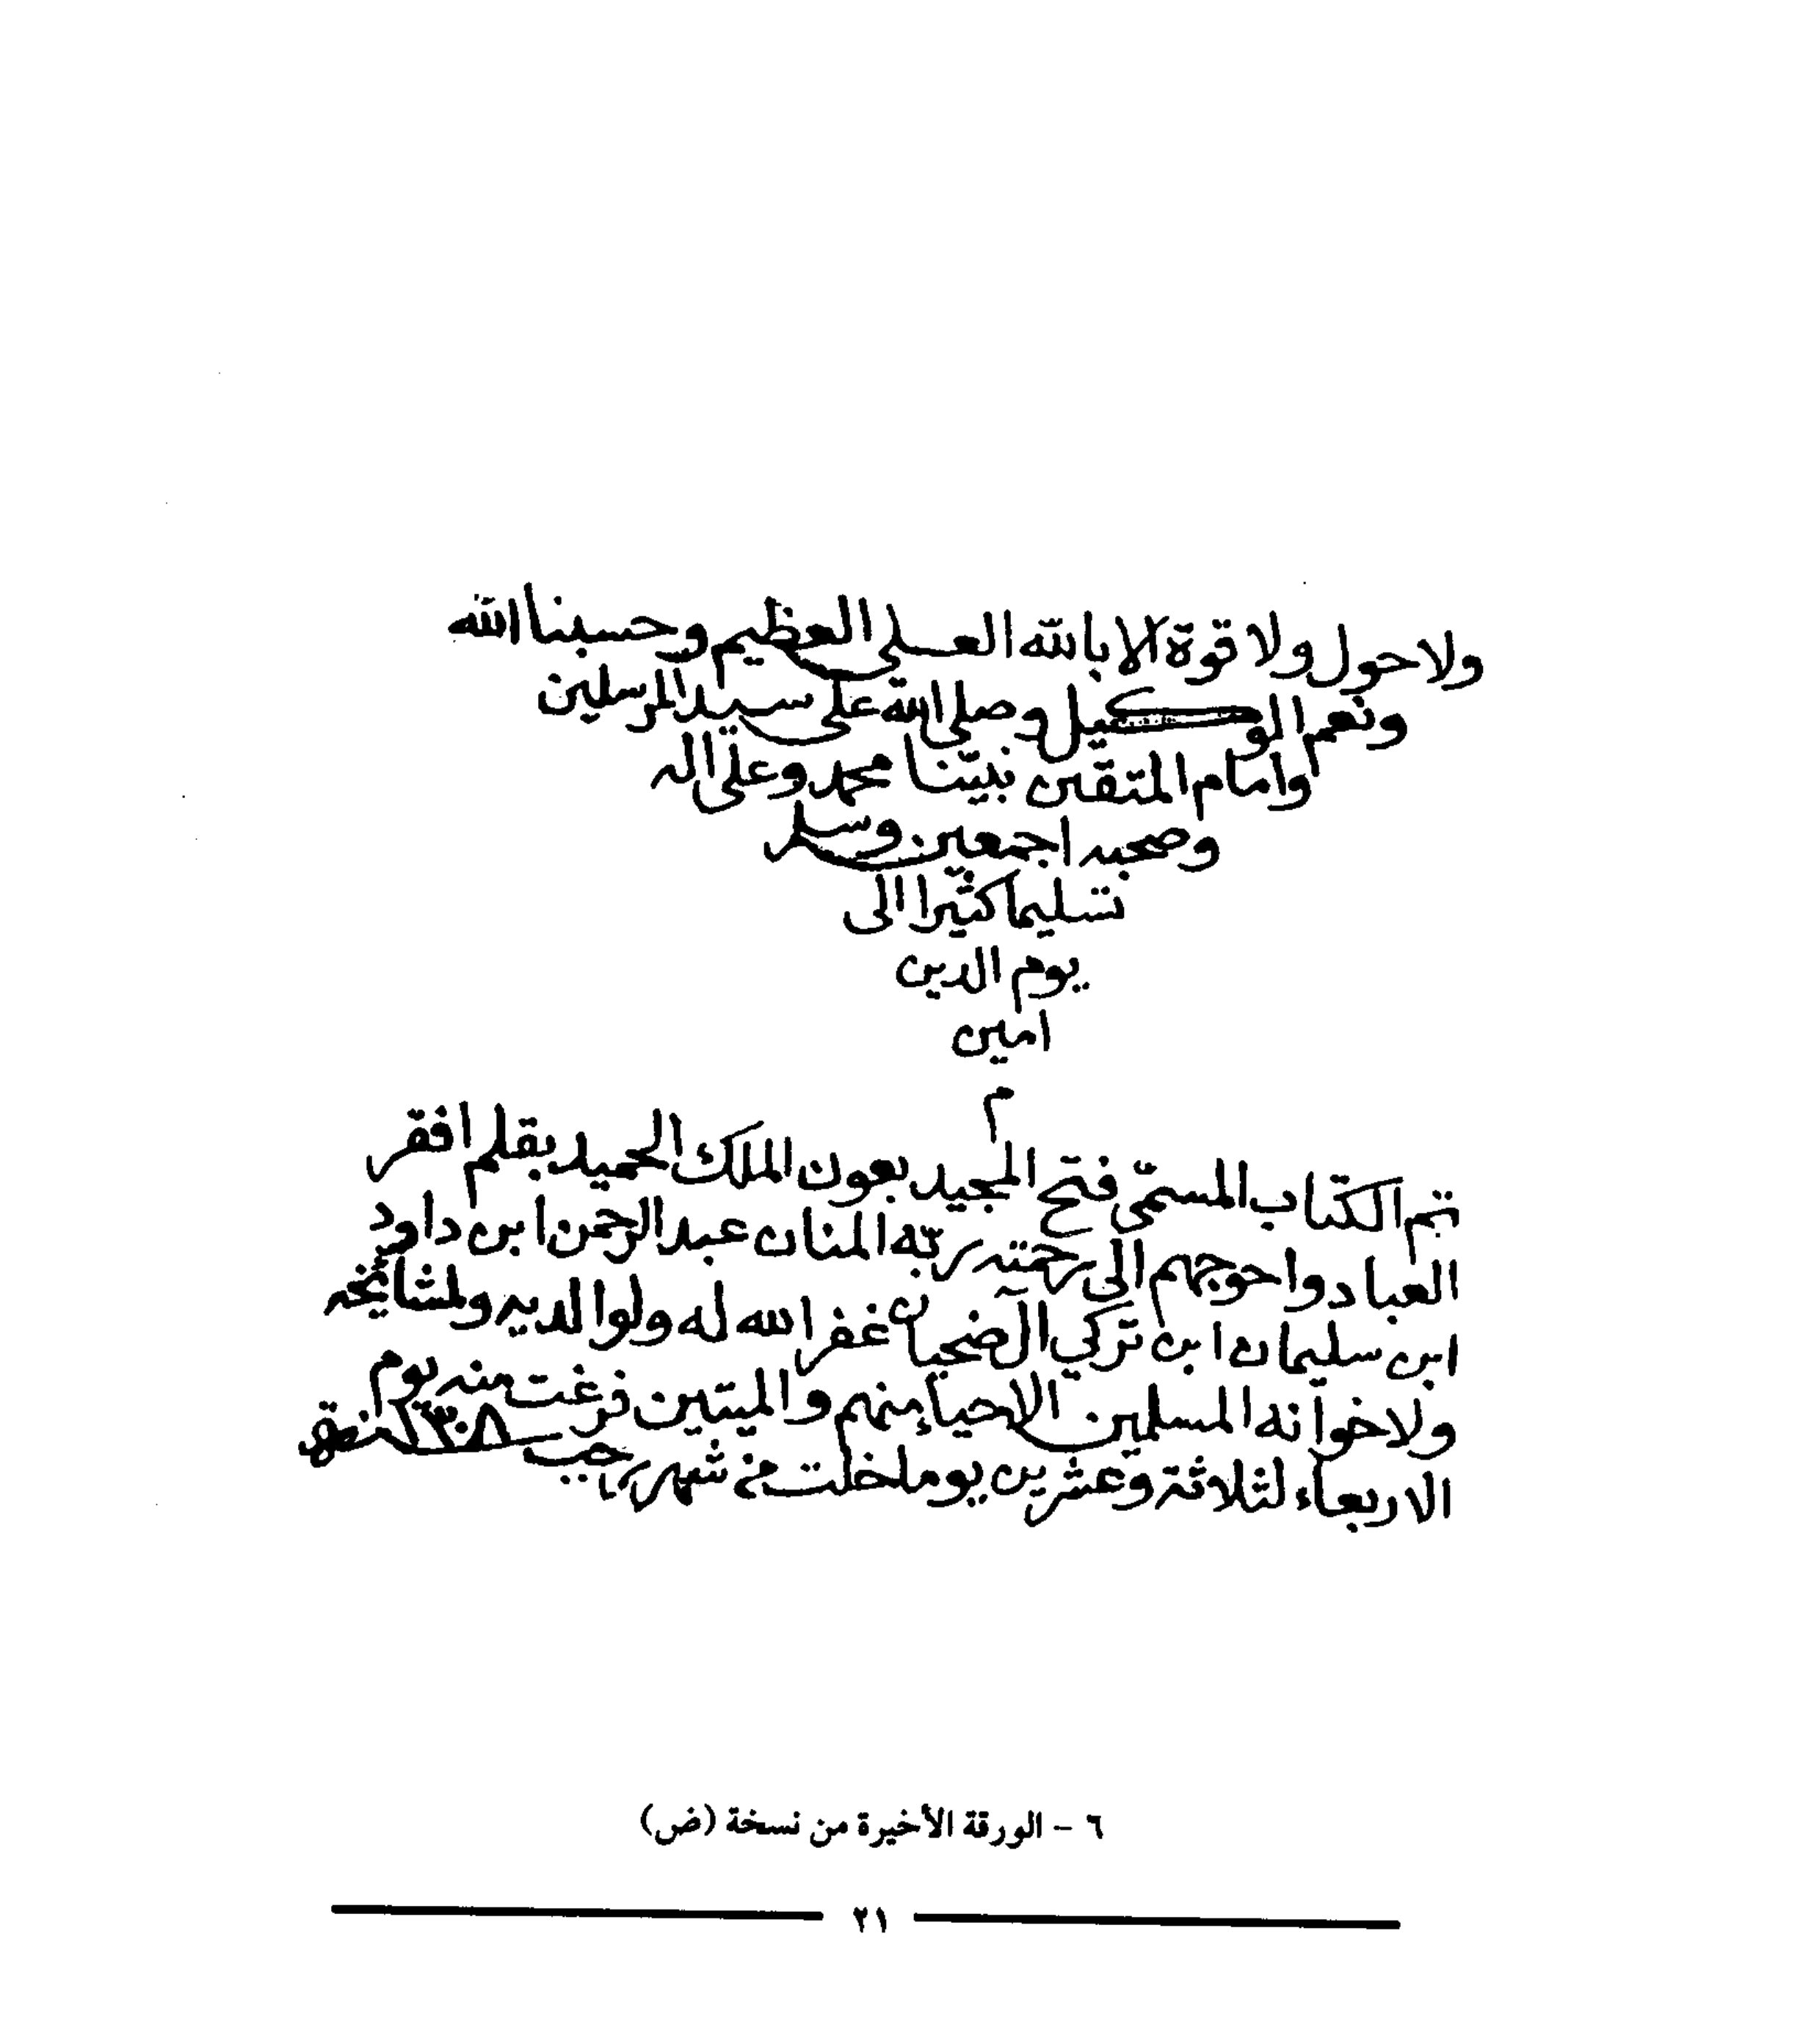 ولا حول ولا قوة الا بالله العلي العظيم وحسبنا الله
ونعم الوكيل وصلى الله على سيد المرسلين
وامام المتقين نبينا محمد وعلى اله
وصحبه اجمعين وسلم
تسليما كثيرا الى
يوم الدين
امين
م
تم الكتاب المسمى فتح المجيد بعون الملك الحميد بقلم افقر
العباد واحوجهم الى رحمته ربه المنان عبد الرحمن ابن داود
ابن سليمان ابن تركي آل ضحيان غفر الله له ولوالديه ولمشائخه
ولاخوانه المسلمين الاحياء منهم والميتين فرغت منه يوم
الاربعاء لثلاثة وعشرين يوما خلت من شهر رجب ١٣٠٨
٦ - الورقة الأخيرة من نسخة (ض)
٢١